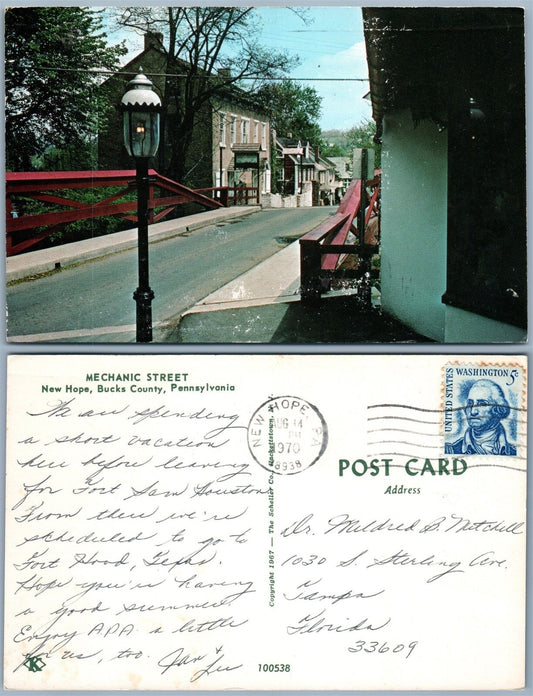 MECHANIC STREET
New Hope, Bucks County, Pennsylvania
We are spending
a short vacation
here before leaving
for Fort Sam Houston
From there we're
scheduled to go to
Fort Hood, Texas.
Hope you're having
a good summer.
Enjoy APA a little
for us, too. Jan &
Lee
K
Copyright 1967 — The Scheller Co., Hackettstown, N.J.
100538
NEW HOPE PA
AUG 14
PM
1970
18938
UNITED STATES
WASHINGTON 5c
POST CARD
Address
Dr. Mildred B. Mitchell
1030 S. Sterling Ave.
Tampa
Florida
33609